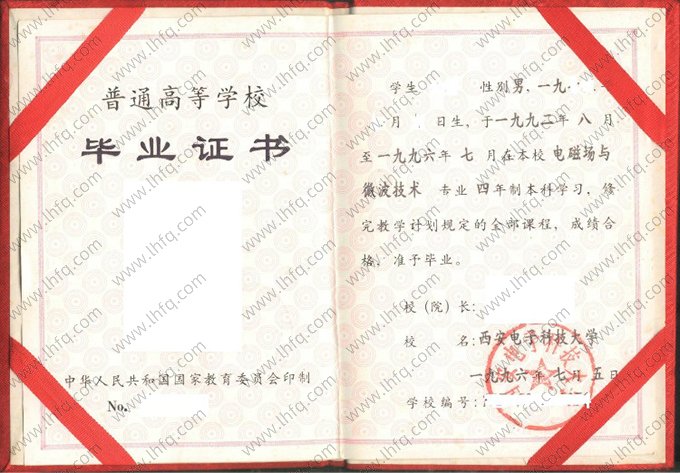 普通高等学校
毕业证书
中华人民共和国国家教育委员会印制
No.
学生 性别男,一九
月 日生,于一九九二年八月
至一九九六年七月在本校电磁场与
微波技术 专业四年制本科学习,修
完教学计划规定的全部课程,成绩合
格,准予毕业。
校(院)长:
校 名:西安电子科技大学
一九九六年七月五日
学校编号:
www.lhfq.com